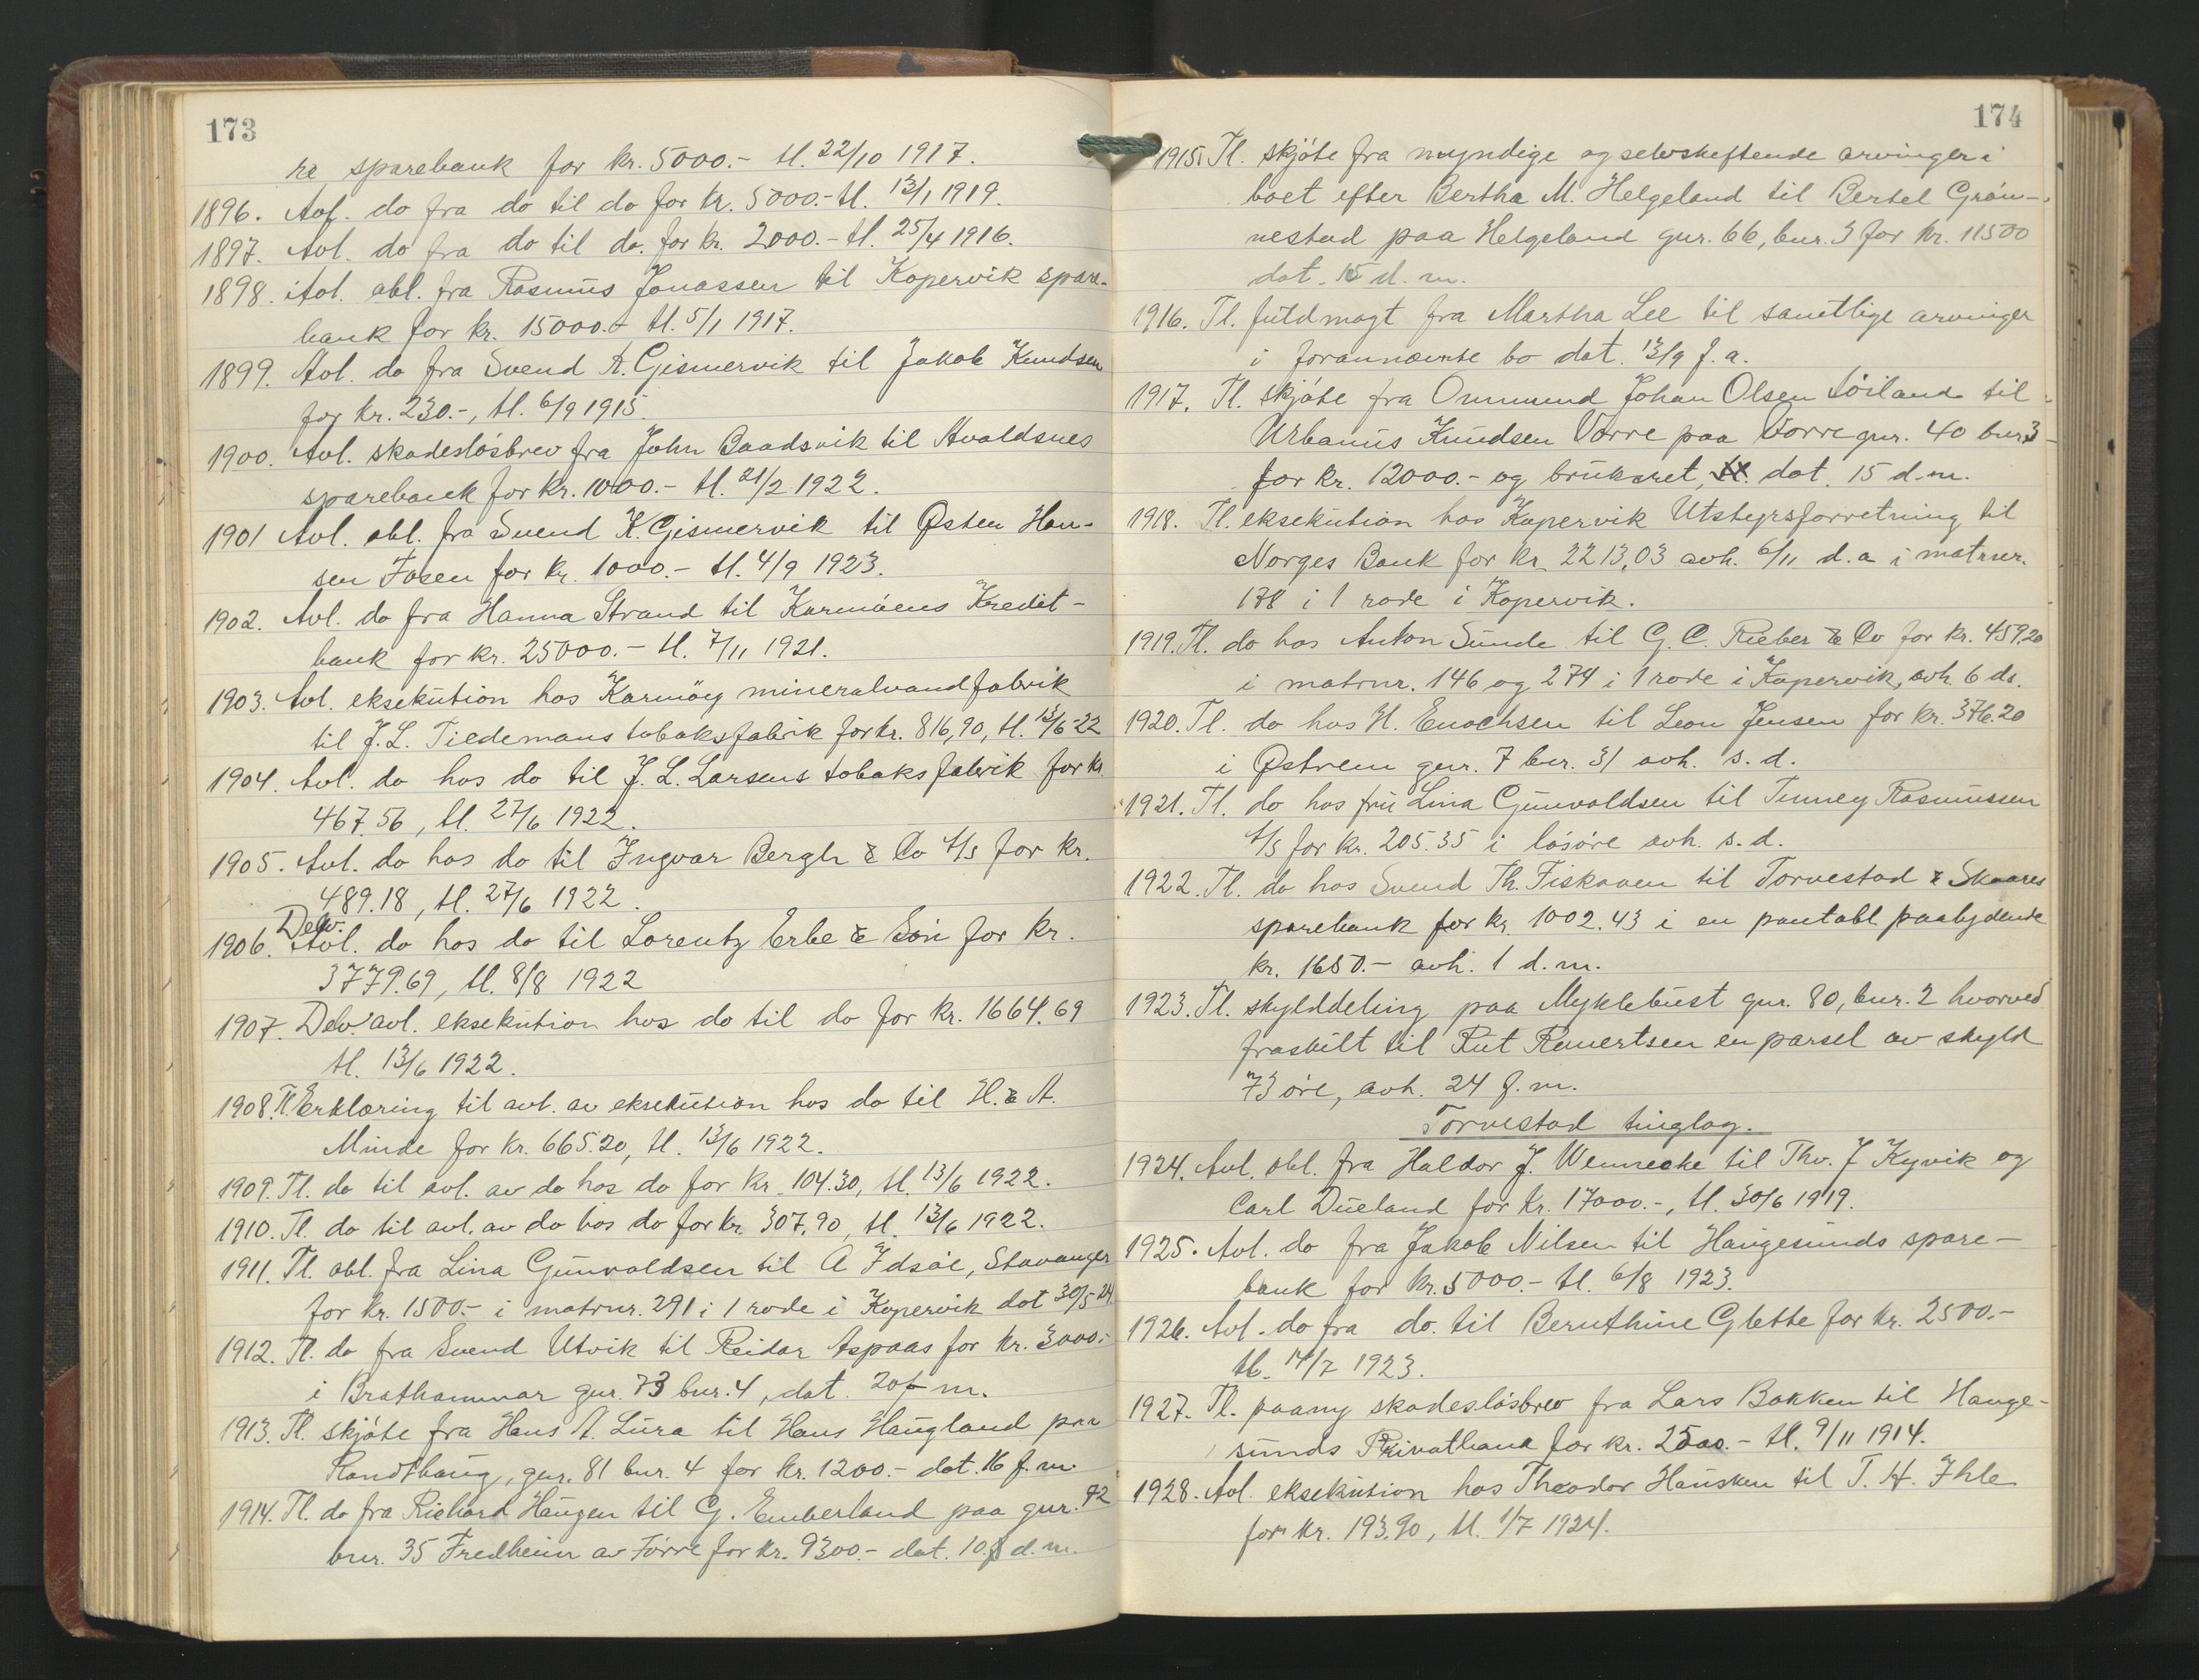 173
re sparebank for kr. 5000.- tl. 22/10 1917.
1896. Avl. do fra do til do for kr. 5000.- tl. 13/1 1919.
1897. Avl. do fra do til do. for kr. 2000.- tl. 25/4 1916.
1898. Avl. obl. fra Rasmus Jonassen til Kopervik spare-
bank for kr. 15000.- tl. 5/1 1917.
1899. Avl. do fra Svend A. Gismervik til Jakob Knudsen
for kr. 230.-, tl. 6/9 1915.
1900. Avl. skadesløsbrev fra John Baadsvik til Avaldsnes
sparebank for kr. 1000.- tl. 21/2 1922.
1901 Avl. obl. fra Svend K. Gismervik til Østen Han-
sen Fosen for kr. 1000.- tl. 4/9 1923.
1902. Avl. do fra Hanna Strand til Karmøens Kredit-
bank for kr. 25000.- tl. 7/11 1921.
1903. Avl. eksekution hos Karmøy mineralvandfabrik
til J. L. Tiedemans tobaksfabrik for kr. 816,90, tl. 13/6-22
1904. Avl. do hos do til J. L. Larsens tobaksfabrik for kr
467.56, tl. 27/6 1922.
1905. Avl. do hos do til Ingvar Bergh & Co A/S for kr.
489.18, tl. 27/6 1922.
Delv.
1906. Avl. do hos do til Lorentz Erbe & Søn for kr.
3779.69, tl. 8/8 1922
1907. Delv avl. eksekution hos do til do for kr. 1664.69
tl. 13/6 1922.
1908. Tl Erklæring til avl. av eksekution hos do til H. & A.
Minde for kr. 665.20, tl. 13/6 1922.
1909. Tl. do til avl. av do hos do for kr. 104.30, tl. 13/6 1922.
1910. Tl. do til avl. av do hos do for kr. 307.90, tl. 13/6 1922.
1911. Tl. obl. fra Lina Gunvaldsen til A Idsøe, Stavanger
for kr. 1500.- i matrnr. 291 i 1 rode i Kopervik dat 30/5-24.
1912. Tl. do fra Svend Utvik til Reidar Aspaas for kr. 3000.-
i Brathammar gnr. 73 bnr. 4, dat. 20 f. m.
1913. Tl. skjøte fra Hans A. Lura til Hans Haugland paa
Randthaug, gnr. 81 bnr. 4 for kr. 1200.- dat. 16 f. m.
1914. Tl. do fra Richard Haugen til G. Emberland paa gnr. 42
bnr. 35 Fredheim av Førre for kr. 9300.- dat. 10 d. m.
174
1915. Tl. skjøte fra myndige og selvskiftende arvinger i
boet efter Bertha M. Helgeland til Bertel Grøn-
nestad paa Helgeland gnr. 66, bnr. 3 for kr. 11500
dat. 15 d. m.
1916. Tl. fuldmagt fra Martha Lee til samtlige arvinger
i forannævnte bo dat. 13/9 f. a.
1917. Tl. skjøte fra Ommund Johan Olsen Løiland til
Urbanus Knudsen Vorre paa Vorre gnr. 40 bnr 3
for kr. 12000.- og brukaret, dat. 15 d. m.
1918. Tl. eksekution hos Kopervik Utstyrsforretning til
Norges Bank for kr 2213,03 avh. 6/11 d. a i matrnr.
178 i 1 rode i Kopervik.
1919. Tl. do hos Anton Sunde til G. C. Rieber & Co for kr. 459.20
i matrnr. 146 og 274 i 1 rode i Kopervik, avh. 6 ds.
1920. Tl. do hos H. Enochsen til Leon Jensen for kr. 376.20
i Østrem gnr. 7 bnr. 31 avh. s. d.
1921. Tl. do hos fru Lina Gunvaldsen til Tenney Rasmussen
A/S for kr. 205.35 i løsøre avh. s. d.
1922. Tl. do hos Svend Th. Fiskaaen til Torvestad & Skaares
sparebank for kr. 1002.43 i en pantobl. paalydende
kr. 1650.- avh. 1 d. m.
1923. Tl. skylddeling paa Myklebust gnr. 80, bnr. 2 hvorved
fraskilt til Rut Reuertsen en parsel av skyld
73 øre, avh. 24 f. m.
Torvestad tinglag.
1924. Avl. obl. fra Haldor J. Wennecke til Thv. J Kyvik og
Carl Dueland for kr. 17000.-, tl. 30/6 1919.
1925. Avl. do fra Jakob Nilsen til Haugesunds spare-
bank for kr. 5000.- tl. 6/8 1923.
1926. Avl. do fra do. til Bernthine Glette for kr. 2500.-
tl. 14/7 1923.
1927. Tl. paany skadesløsbrev fra Lars Bakken til Hauge-
sunds Privatbank for kr. 2500.- tl. 9/11 1914.
1928. Avl. eksekution hos Theodor Hausken til T. H. Ihle
for kr. 193.90, tl. 1/7 1924.